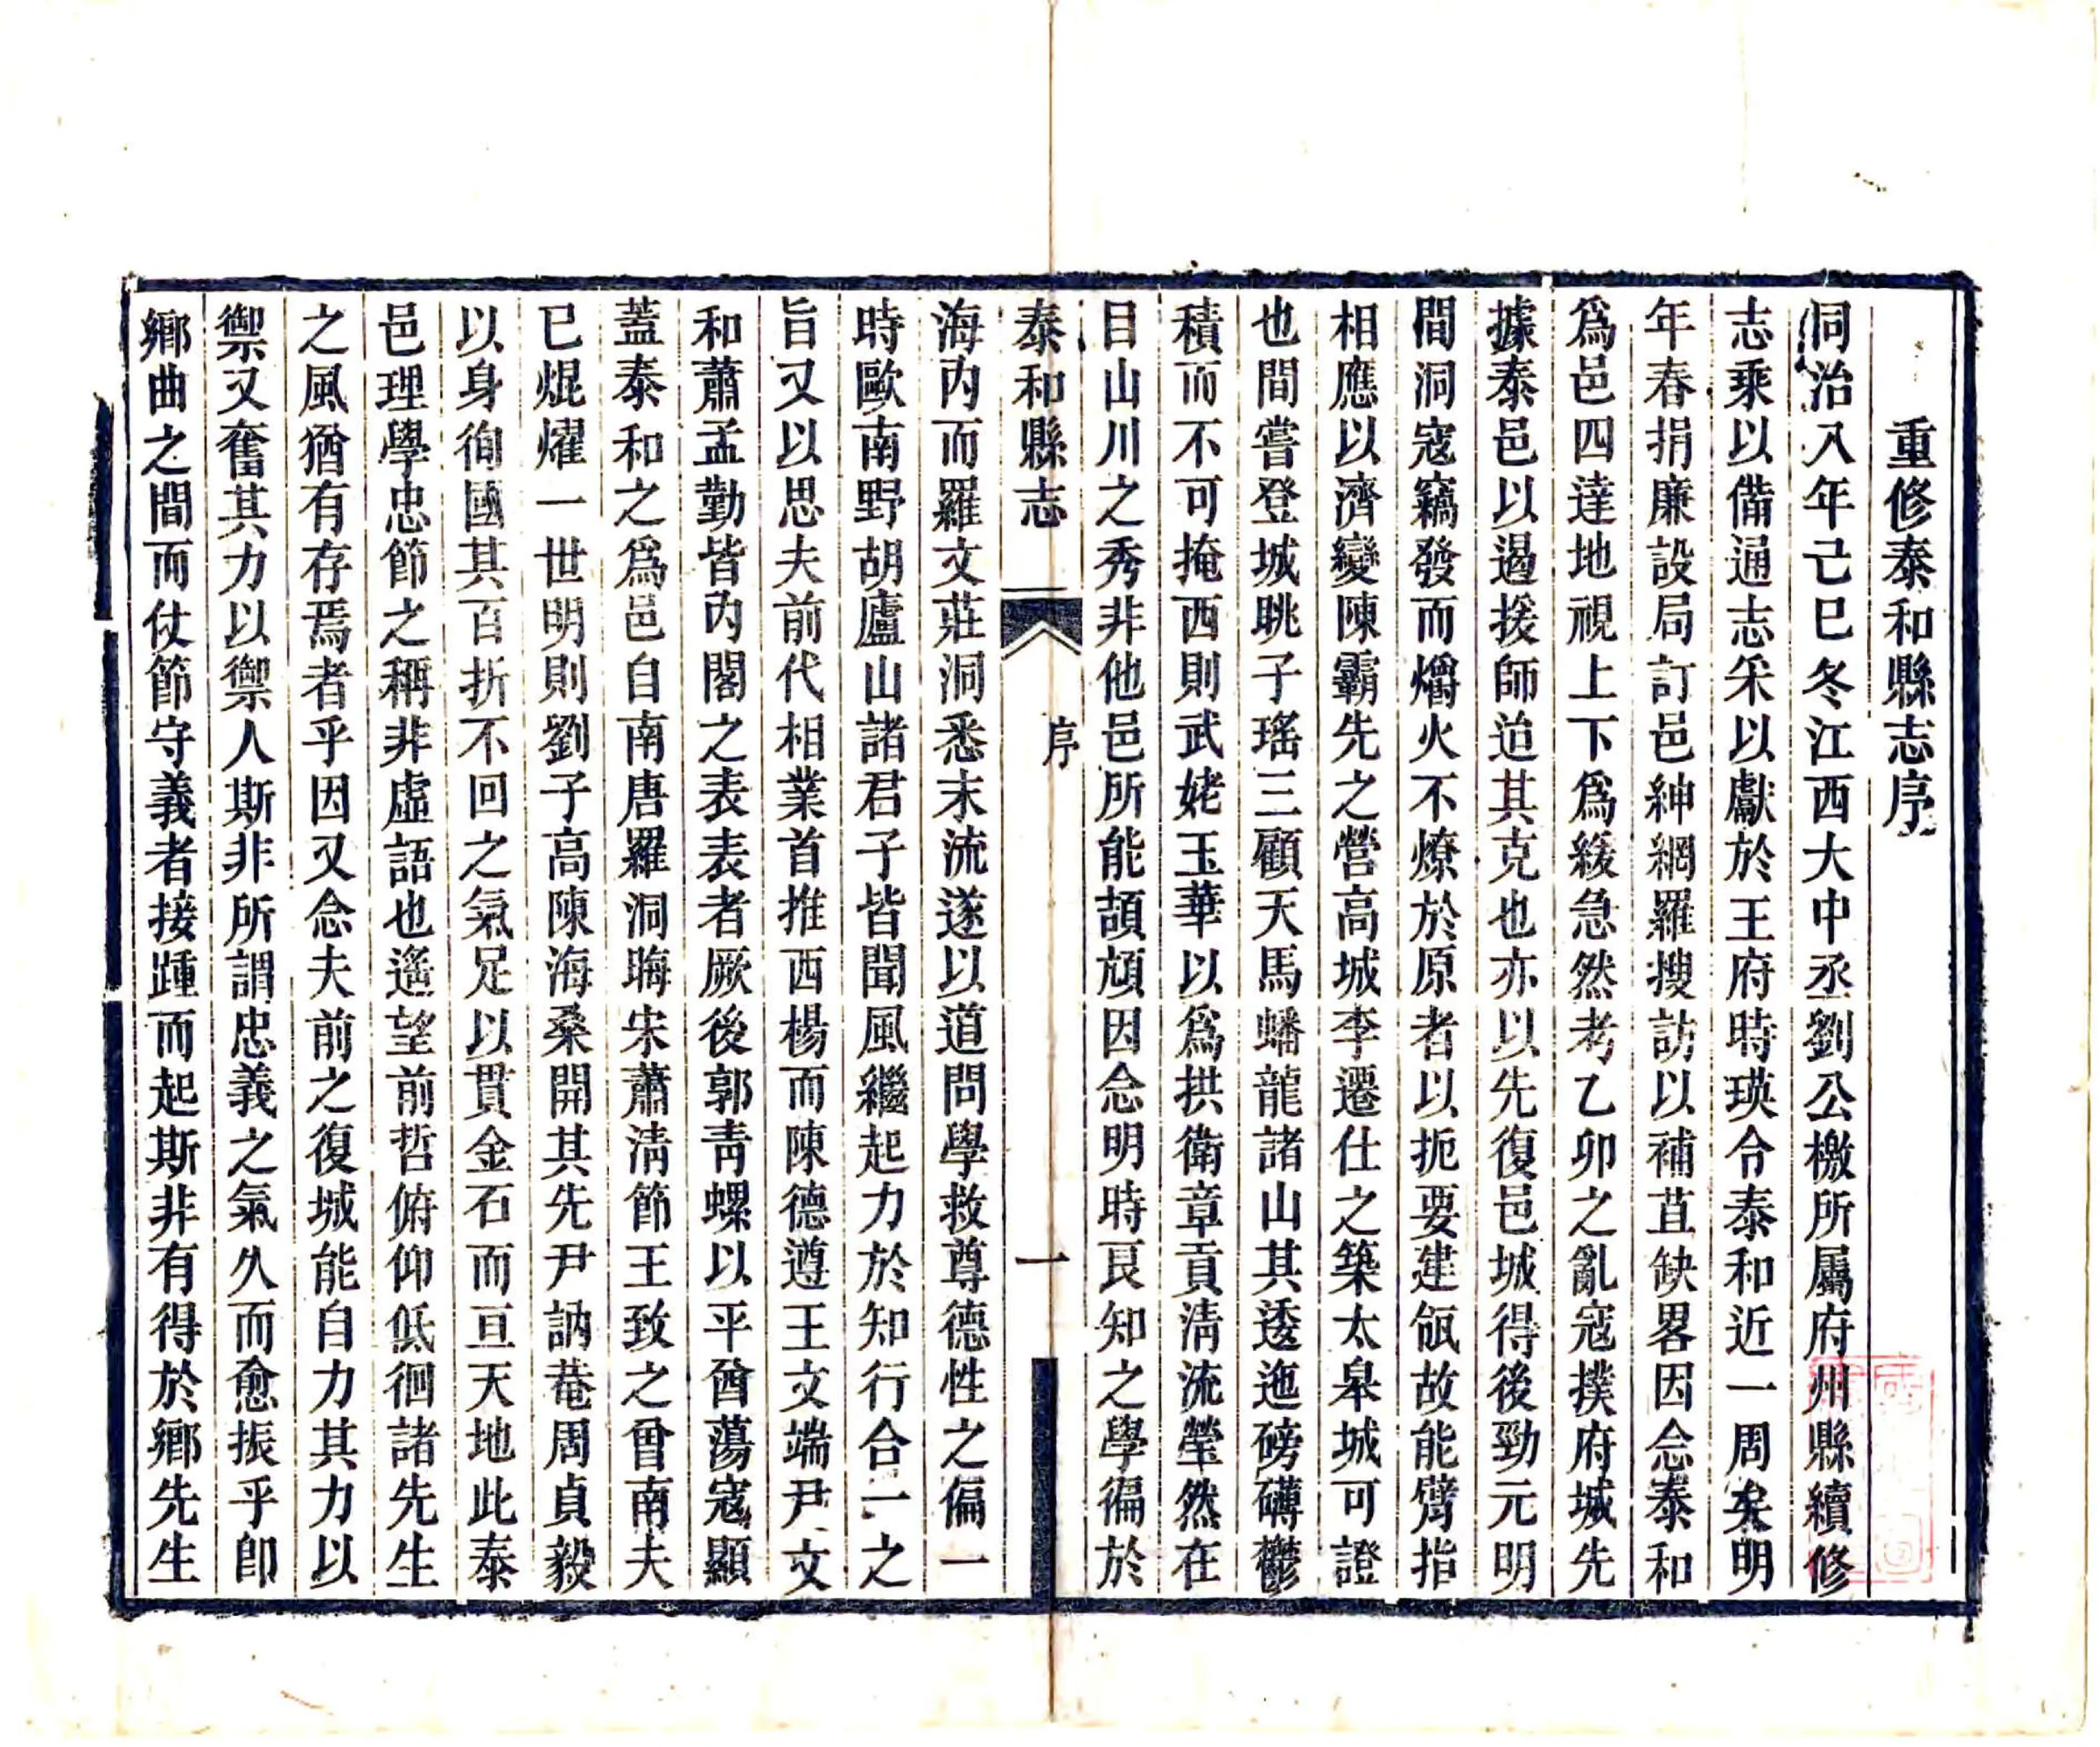 重修泰和縣志序
同治八年己巳冬江西大中丞劉公檄所屬府州縣續修
志乘以備通志采以獻於王府時瑛令泰和近一周矣明
年春捐廉設局訂邑紳網羅搜訪以補苴缺畧因念泰和
爲邑四達地視上下爲緩急然考乙卯之亂寇撲府城先
據泰邑以遏援師迨其克也亦以先復邑城得後勁元明
間洞寇竊發而爝火不燎於原者以扼要建瓴故能臂指
相應以濟變陳霸先之營高城李遷仕之築太皋城可證
也間嘗登城眺子瑤三顧天馬蟠龍諸山其逶迤磅礴鬱
積而不可掩西則武姥玉華以爲拱衛章貢淸流瑩然在
目山川之秀非他邑所能頡頏因念明時艮知之學徧於
泰和縣志
序
一
海內而羅文莊洞悉末流遂以道問學救尊德性之偏一
時歐南野胡廬山諸君子皆聞風繼起力於知行合一之
旨又以思夫前代相業首推西楊而陳德遵王文端尹文
和蕭孟勤皆內閣之表表者厥後郭靑螺以平酋蕩寇顯
蓋泰和之爲邑自南唐羅洞晦宋蕭淸節王致之曾南夫
已焜燿一世明則劉子高陳海桑開其先尹訥菴周貞毅
以身徇國其百折不回之氣足以貫金石而亘天地此泰
邑理學忠節之稱非虛語也遙望前哲俯仰低徊諸先生
之風猶有存焉者乎因又念夫前之復城能自力其力以
禦又奮其力以禦人斯非所謂忠義之氣久而愈振乎卽
鄉曲之間而仗節守義者接踵而起斯非有得於鄉先生